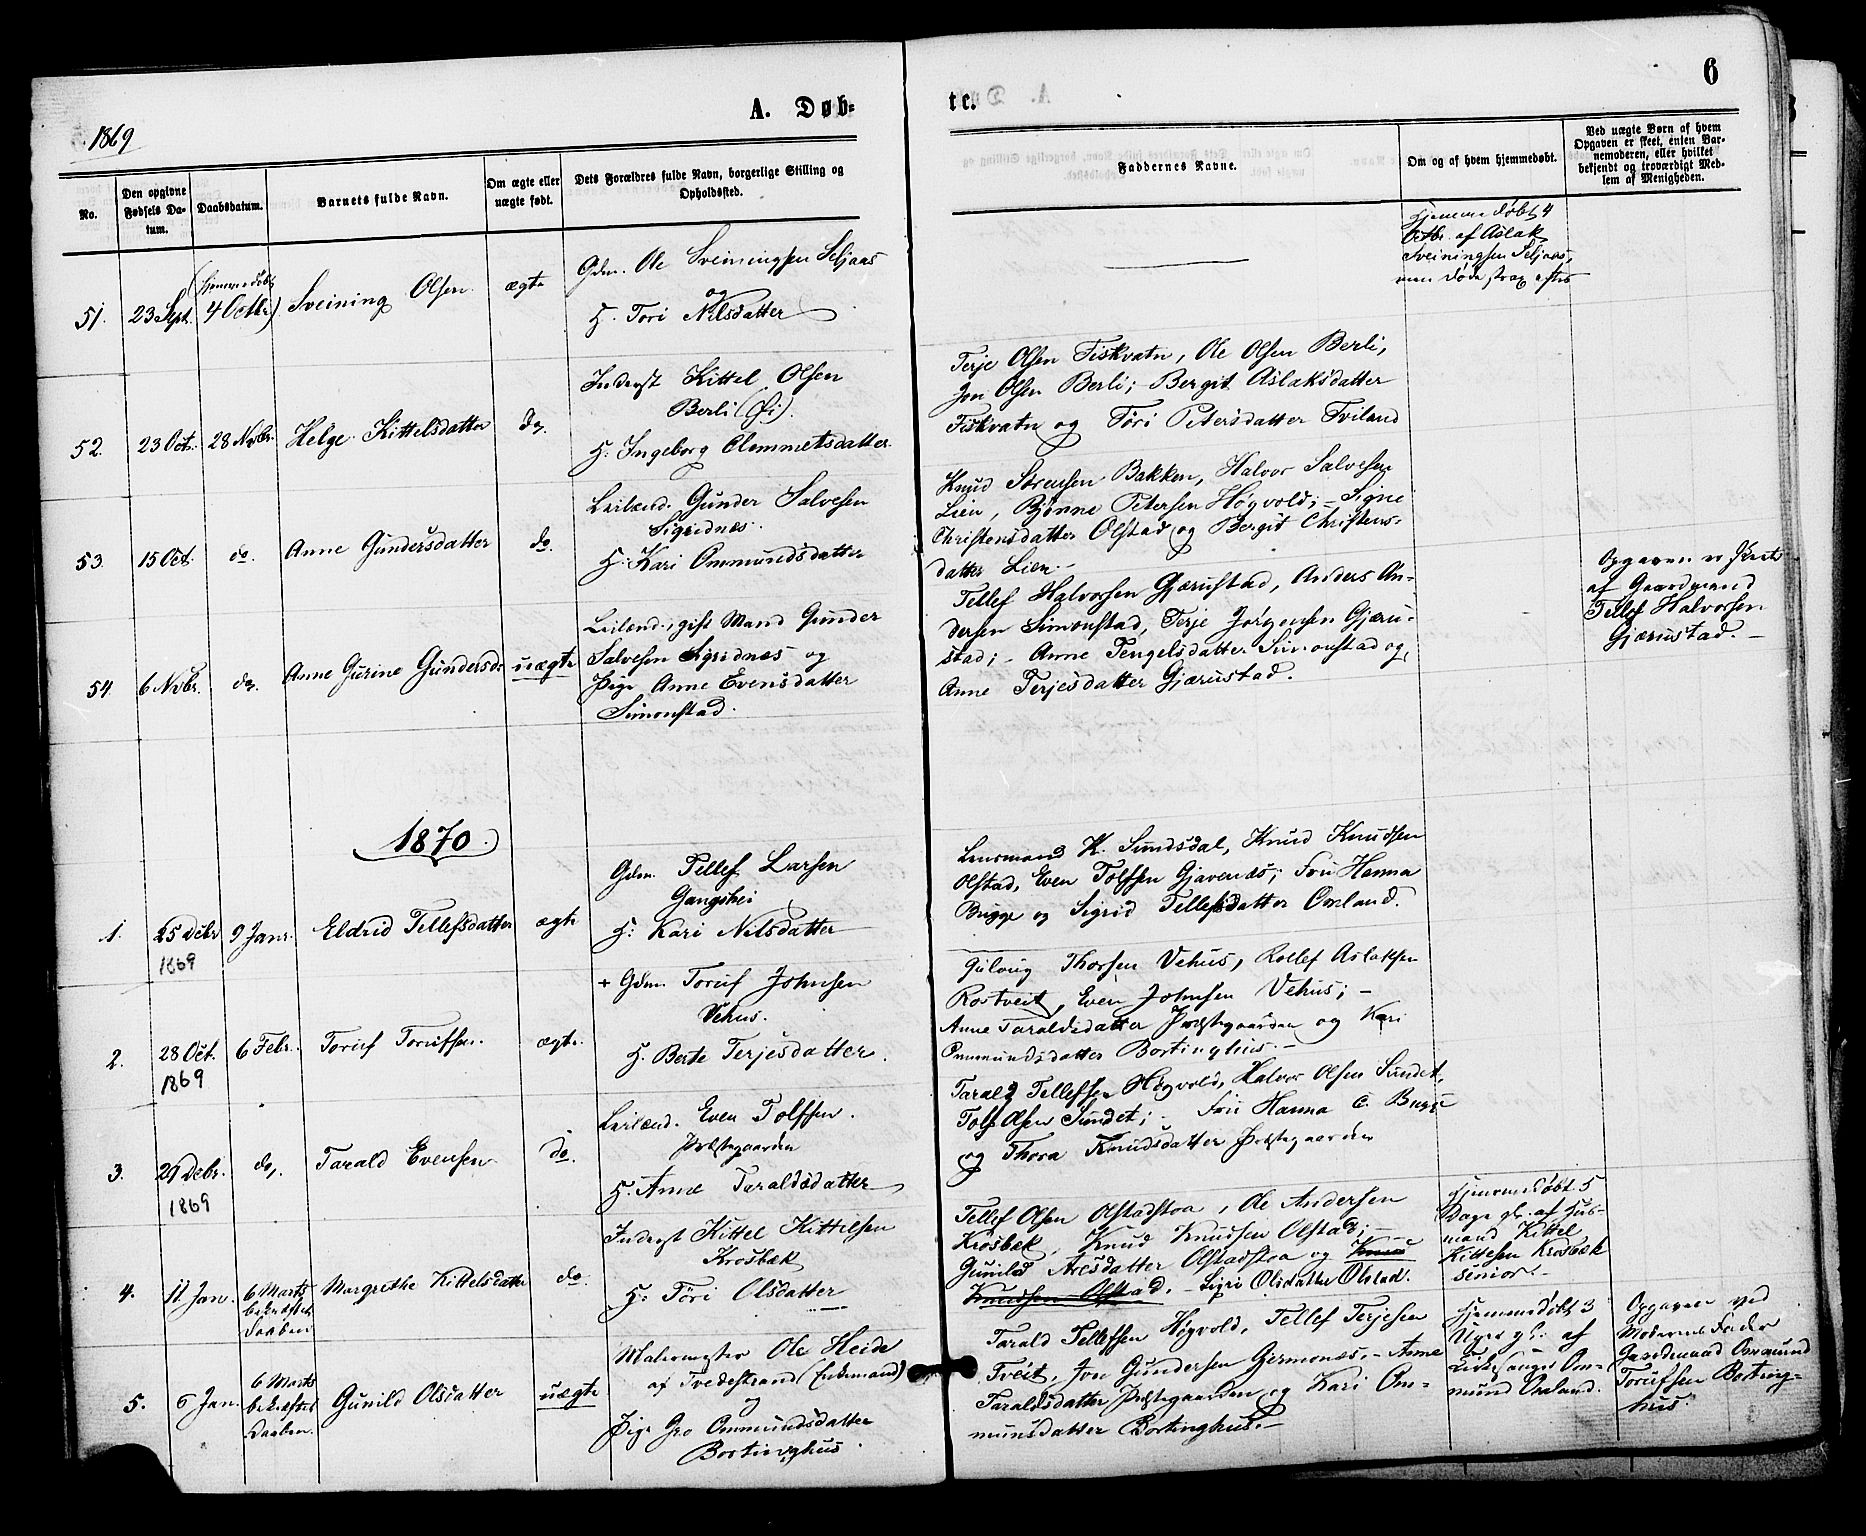 6
A. Døb=
te.
1869
No.
Den opgivne Fødsels Da-tum.
Daabsdatum.
Barnets fulde Navn.
Om ægte eller uægte født.
Dets Forældres fulde Navn, borgerlige Stilling og Opholdssted.
Faddernes Navne.
Om og af hvem hjemmedøbt.
Ved uægte Børn af hvem Opgaven er skeet, enten Bar-nemoderen, eller hvilket bekjendt og troværdigt Med-lem af Menigheden.
51. 23 Sept. (hjemmedøbt 4 Octbr) Sveining Olsen ægte
Gdm. Ole Sveiningsen Seljaas
og
H. Tori Nilsdatter
Hjemmedøbt 4
Octbr. af Aslak
Sveiningsen Seljaas,
men døde strax efter
52. 23 Oct. 28 Novbr. Helge Kittelsdatter do.
Inderst Kittel Olsen
Berli
H. Ingeborg Clemmetsdatter
Terje Olsen Fiskvatn, Ole Olsen Berli,
Jon Olsen Berli; Bergit Aslaksdatter
Fiskvatn og Töri Petersdatter Tviland
53. 15 Oct. do. Anne Gundersdatter do.
Leilænd. Gunder Salvesen
Sigridnæs.
H. Kari Ommundsdatter
Knud Sörensen Bakken, Halvor Salvesen
Lien, Bjönne Petersen Høgvold; – Signe
Christensdatter Olstad og Bergit Christens-
datter Lien.–
54. 6 Novbr. do. Anne Gurine Gundersdr uægte
Leilænd., gift Mand Gunder
Salvesen Sigridnæs og
Pige Anne Evensdatter
Simonstad.
Tellef Halvorsen Gjærustad, Anders An-
dersen Simonstad, Terje Jörgensen Gjæru-
stad; – Anne Tengelsdatter Simonstad og
Anne Terjesdatter Gjærustad.
Opgaven er skeet
af Gaardmand
Tellef Halvorsen
Gjærustad. –
1870.
1. 25 Debr 1869 9 Janr. Eldrid Tellefsdatter ægte
Gdm. Tellef Larsen
Gangshei
H. Kari Nilsdatter
Lensmand K. Sundsdal, Knud Knudsen
Olstad, Even Tolfsen Gjavenæs; Fru Hanna
Bugge og Sigrid Tellefsdatter Omland.
2. 28 Oct. 1869 6 Febr. Toruf Torufsen. ægte.
+ Gdm. Toruf Johnsen
Vehus.
H. Berte Terjesdatter.
Gulvug Thorsen Vehus, Rollef Aslaksen
Rostveit, Even Johnsen Vehus; –
Anne Taraldsdatter Præstegaarden og Kari
Ommundsdatter Bortinghus.–
3. 29 Debr. 1869 do. Tarald Evensen do.
Leilænd. Even Tolfsen.
Præstegaarden
H. Anne Taraldsdatter
Tarald Tellefsen Høgvold, Halvor Olsen Sundet,
Tolf Olsen Sundet; – Fru Hanna C. Bugge
og Thora Knudsdatter Præstegaarden
4. 11 Jan. 6 Marts bekræftet Daaben Margrethe Kittelsdatter do.
Inderst Kittel Kittelsen
Krosbæk
H. Töri Olsdatter
Tellef Olsen Olstadstoa, Ole Andersen
Krosbæk, Knud Knudsen Olstad; –
Gunild Aresdatter Olstadstoa og Knud
Knudsen Olstad. – Sigri Olsdatter Olstad.
Hjemmedøbt 5
Dage gl. af Hus-
mand Kittel
Kittelsen Krosbæk
senior.–
5. 6 Jan. 6 Marts bekræftet Daaben. Gunild Olsdatter uægte
Malermester Ole Heide
af Tvedestrand (Enkemand)
og
Pige Gro Ommundsdatter
Bortinghus.
Tarald Tellefsen Høgvold, Tellef Terjesen
Tveit, Jon Gundersen Germonæs. – Anne
Taraldsdatter Præstegaarden og Kari Om-
mundsdatter Bortinghus.–
Hjemmedøbt 3
Uger gl. af
Kirkesanger Om-
mund Omland.
Opgaven ved
Moderens Fader
Gaardmand Ommund
Torufsen Borting-
hus.